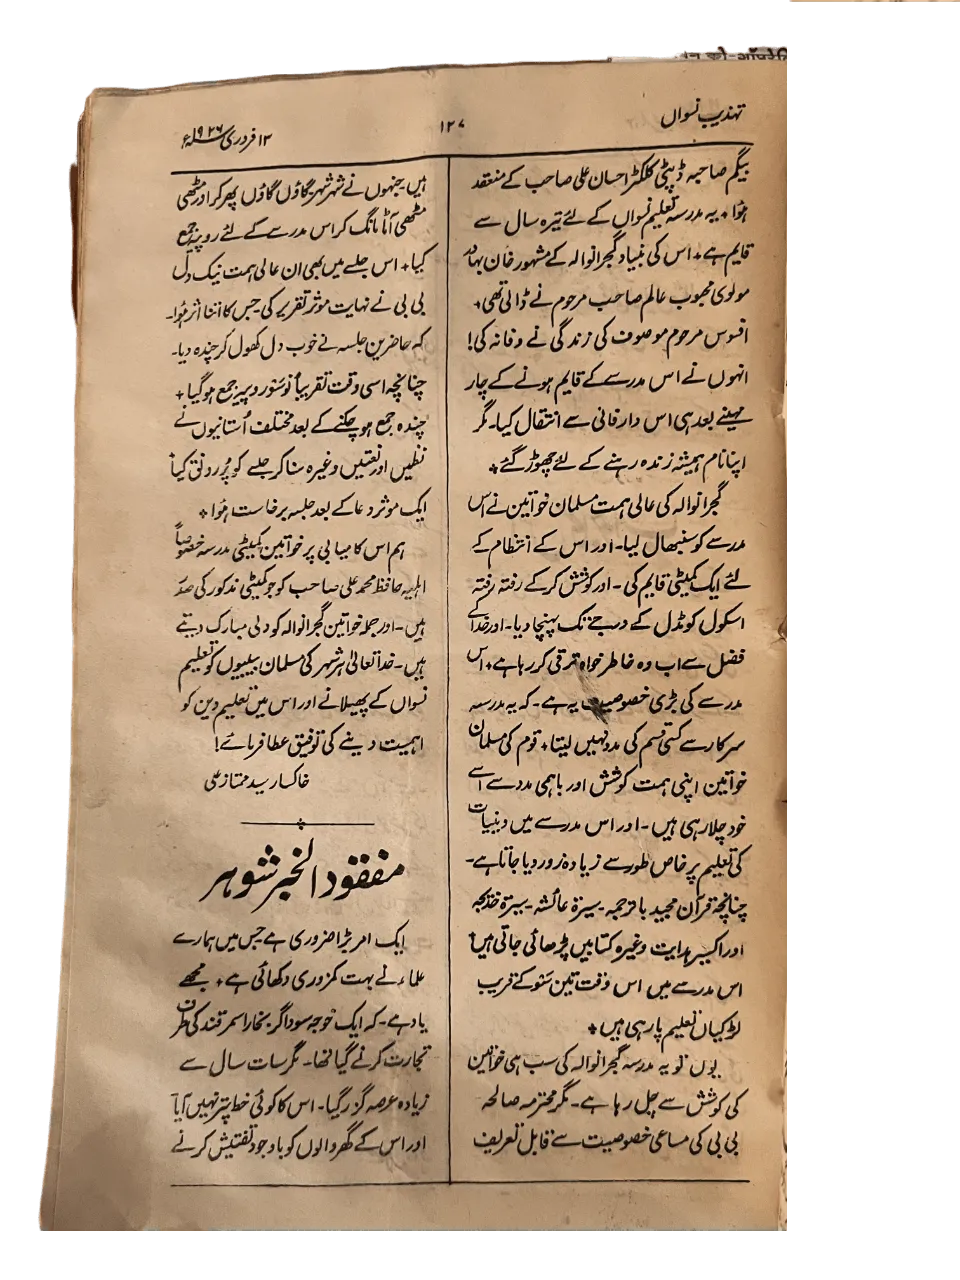 تہذیب نسواں
۱۲۷
۱۳ فروری ۱۹۲۶ء
بیگم صاحبہ ڈپٹی کلکٹر احسان علی صاحب کے منعقد
ہُوا + یہ مدرسہ تعلیم نسواں کے لئے تیرہ سال سے
قایم ہے + اس کی بنیاد گجرانوالہ کے مشہور خان بہادر
مولوی محبوب عالم صاحب مرحوم نے ڈالی تھی +
افسوس مرحوم موصوف کی زندگی نے وفا نہ کی!
انہوں نے اس مدرسے کے قایم ہونے کے چار
مہینے بعد ہی اس دار فانی سے انتقال کیا۔ مگر
اپنا نام ہمیشہ زندہ رہنے کے لئے چھوڑ گئے +
گجرانوالہ کی عالی ہمت مسلمان خواتین نے اس
مدرسے کو سنبھال لیا۔ اور اس کے انتظام کے
لئے ایک کمیٹی قایم کی۔ اور کوشش کرکے رفتہ رفتہ
اسکول کو مڈل کے درجے تک پہنچا دیا۔ اور خدا کے
فضل سے اب وہ خاطر خواہ ترقی کر رہا ہے + اس
مدرسے کی بڑی خصوصیت یہ ہے۔ کہ یہ مدرسہ
سرکار سے کسی قسم کی مدد نہیں لیتا + قوم کی مسلمان
خواتین اپنی ہمت کوشش اور باہمی مدد سے اسے
خود چلا رہی ہیں۔ اور اس مدرسے میں دینیات
کی تعلیم پر خاص طور سے زیادہ زور دیا جاتا ہے۔
چنانچہ قرآن مجید باترجمہ۔ سیرۃ عائشہ۔ سیرۃ خدیجہ
اور اکسیر ہدایت وغیرہ کتابیں پڑھائی جاتی ہیں +
اس مدرسے میں اس وقت تین سَو کے قریب
لڑکیاں تعلیم پا رہی ہیں +
یوں تو یہ مدرسہ گجرانوالہ کی سب ہی خواتین
کی کوشش سے چل رہا ہے۔ مگر محترمہ صالحہ
بی بی کی مساعی خصوصیت سے قابل تعریف
ہیں۔ جنہوں نے شہر شہر گاؤں گاؤں پھر کر اور مٹھی
مٹھی آٹا مانگ کر اس مدرسے کے لئے روپیہ جمع
کیا + اس جلسے میں بھی ان عالی ہمت نیک دل
بی بی نے نہایت موثر تقریر کی جس کا اتنا اثر ہُوا۔
کہ حاضرین جلسہ نے خوب دل کھول کر چندہ دیا۔
چنانچہ اسی وقت تقریباً نوسَو روپیہ جمع ہو گیا +
چندہ جمع ہو چکنے کے بعد مختلف اُستانیوں نے
نظمیں اور نعتیں وغیرہ سنا کر جلسے کو پُر رونق کیا +
ایک موثر دعا کے بعد جلسہ برخاست ہُوا +
ہم اس کامیابی پر خواتین کمیٹی مدرسہ خصوصاً
اہلیہ حافظ محمد علی صاحب کو جو کمیٹی مذکور کی صدر
ہیں۔ اور جملہ خواتین گجرانوالہ کو دلی مبارک دیتے
ہیں۔ خدا تعالیٰ ہر شہر کی مسلمان بیبیوں کو تعلیم
نسواں کے پھیلانے اور اس میں تعلیم دین کو
اہمیت دینے کی توفیق عطا فرمائے!
خاکسار سید ممتاز علی
مفقود الخبر شوہر
ایک امر بڑا ضروری ہے جس میں ہمارے
علماء نے بہت کمزوری دکھائی ہے + مجھے
یاد ہے۔ کہ ایک خوجہ سوداگر بخارا سمرقند کی طرف
تجارت کرنے گیا تھا۔ مگر سات سال سے
زیادہ عرصہ گزر گیا۔ اس کا کوئی خط پتر نہیں آیا +
اور اس کے گھر والوں کو باوجود تفتیش کرنے